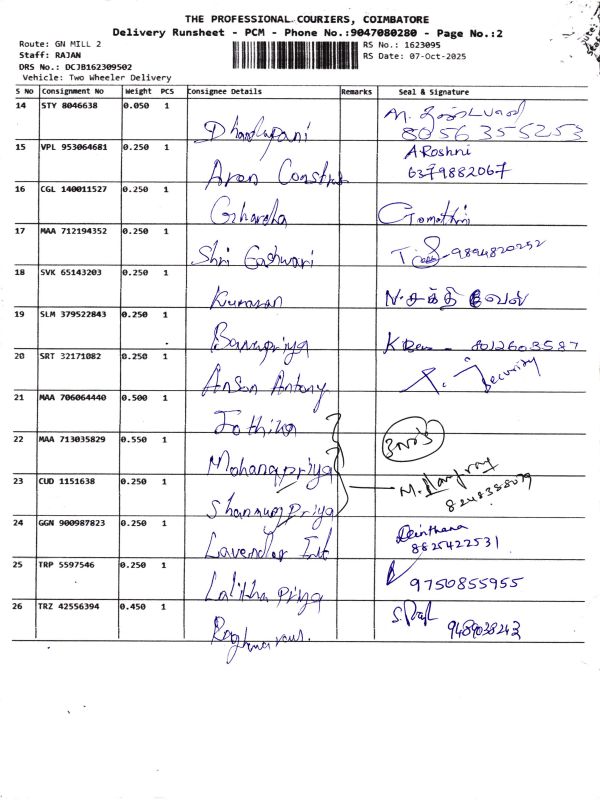 THE PROFESSIONAL COURIERS, COIMBATORE
Delivery Runsheet - PCM - Phone No.:9047080280 - Page No.:2
Route: GN MILL 2
RS No.: 1623095
Staff: RAJAN
RS Date: 07-Oct-2025
DRS No.: DCJB162309502
Vehicle: Two Wheeler Delivery
S No Consignment No Weight PCS Consignee Details Remarks Seal & Signature
14 STY 8046638 0.050 1
Dhandapani 80563 55253
15 VPL 953064681 0.250 1 A Roshni
Aran Constru 6379882067
16 CGL 140011527 0.250 1
Gomathi
17 MAA 712194352 0.250 1
Shri Eashwari 9894820252
18 SVK 65143203 0.250 1
Kumaran N. சக்தி வேல்
19 SLM 379522843 0.250 1
Banupriya 8012603587
20 SRT 32171082 0.250 1
Anson Antony Security
21 MAA 706064440 0.500 1
Jothika
22 MAA 713035829 0.550 1
Mohanapriya
23 CUD 1151638 0.250 1
Shanmuga Priya 8248358079
24 GGN 900987823 0.250 1
Lavender Int 8825422531
25 TRP 5597546 0.250 1
Lalitha Priya 9750855955
26 TRZ 42556394 0.450 1
9489038243